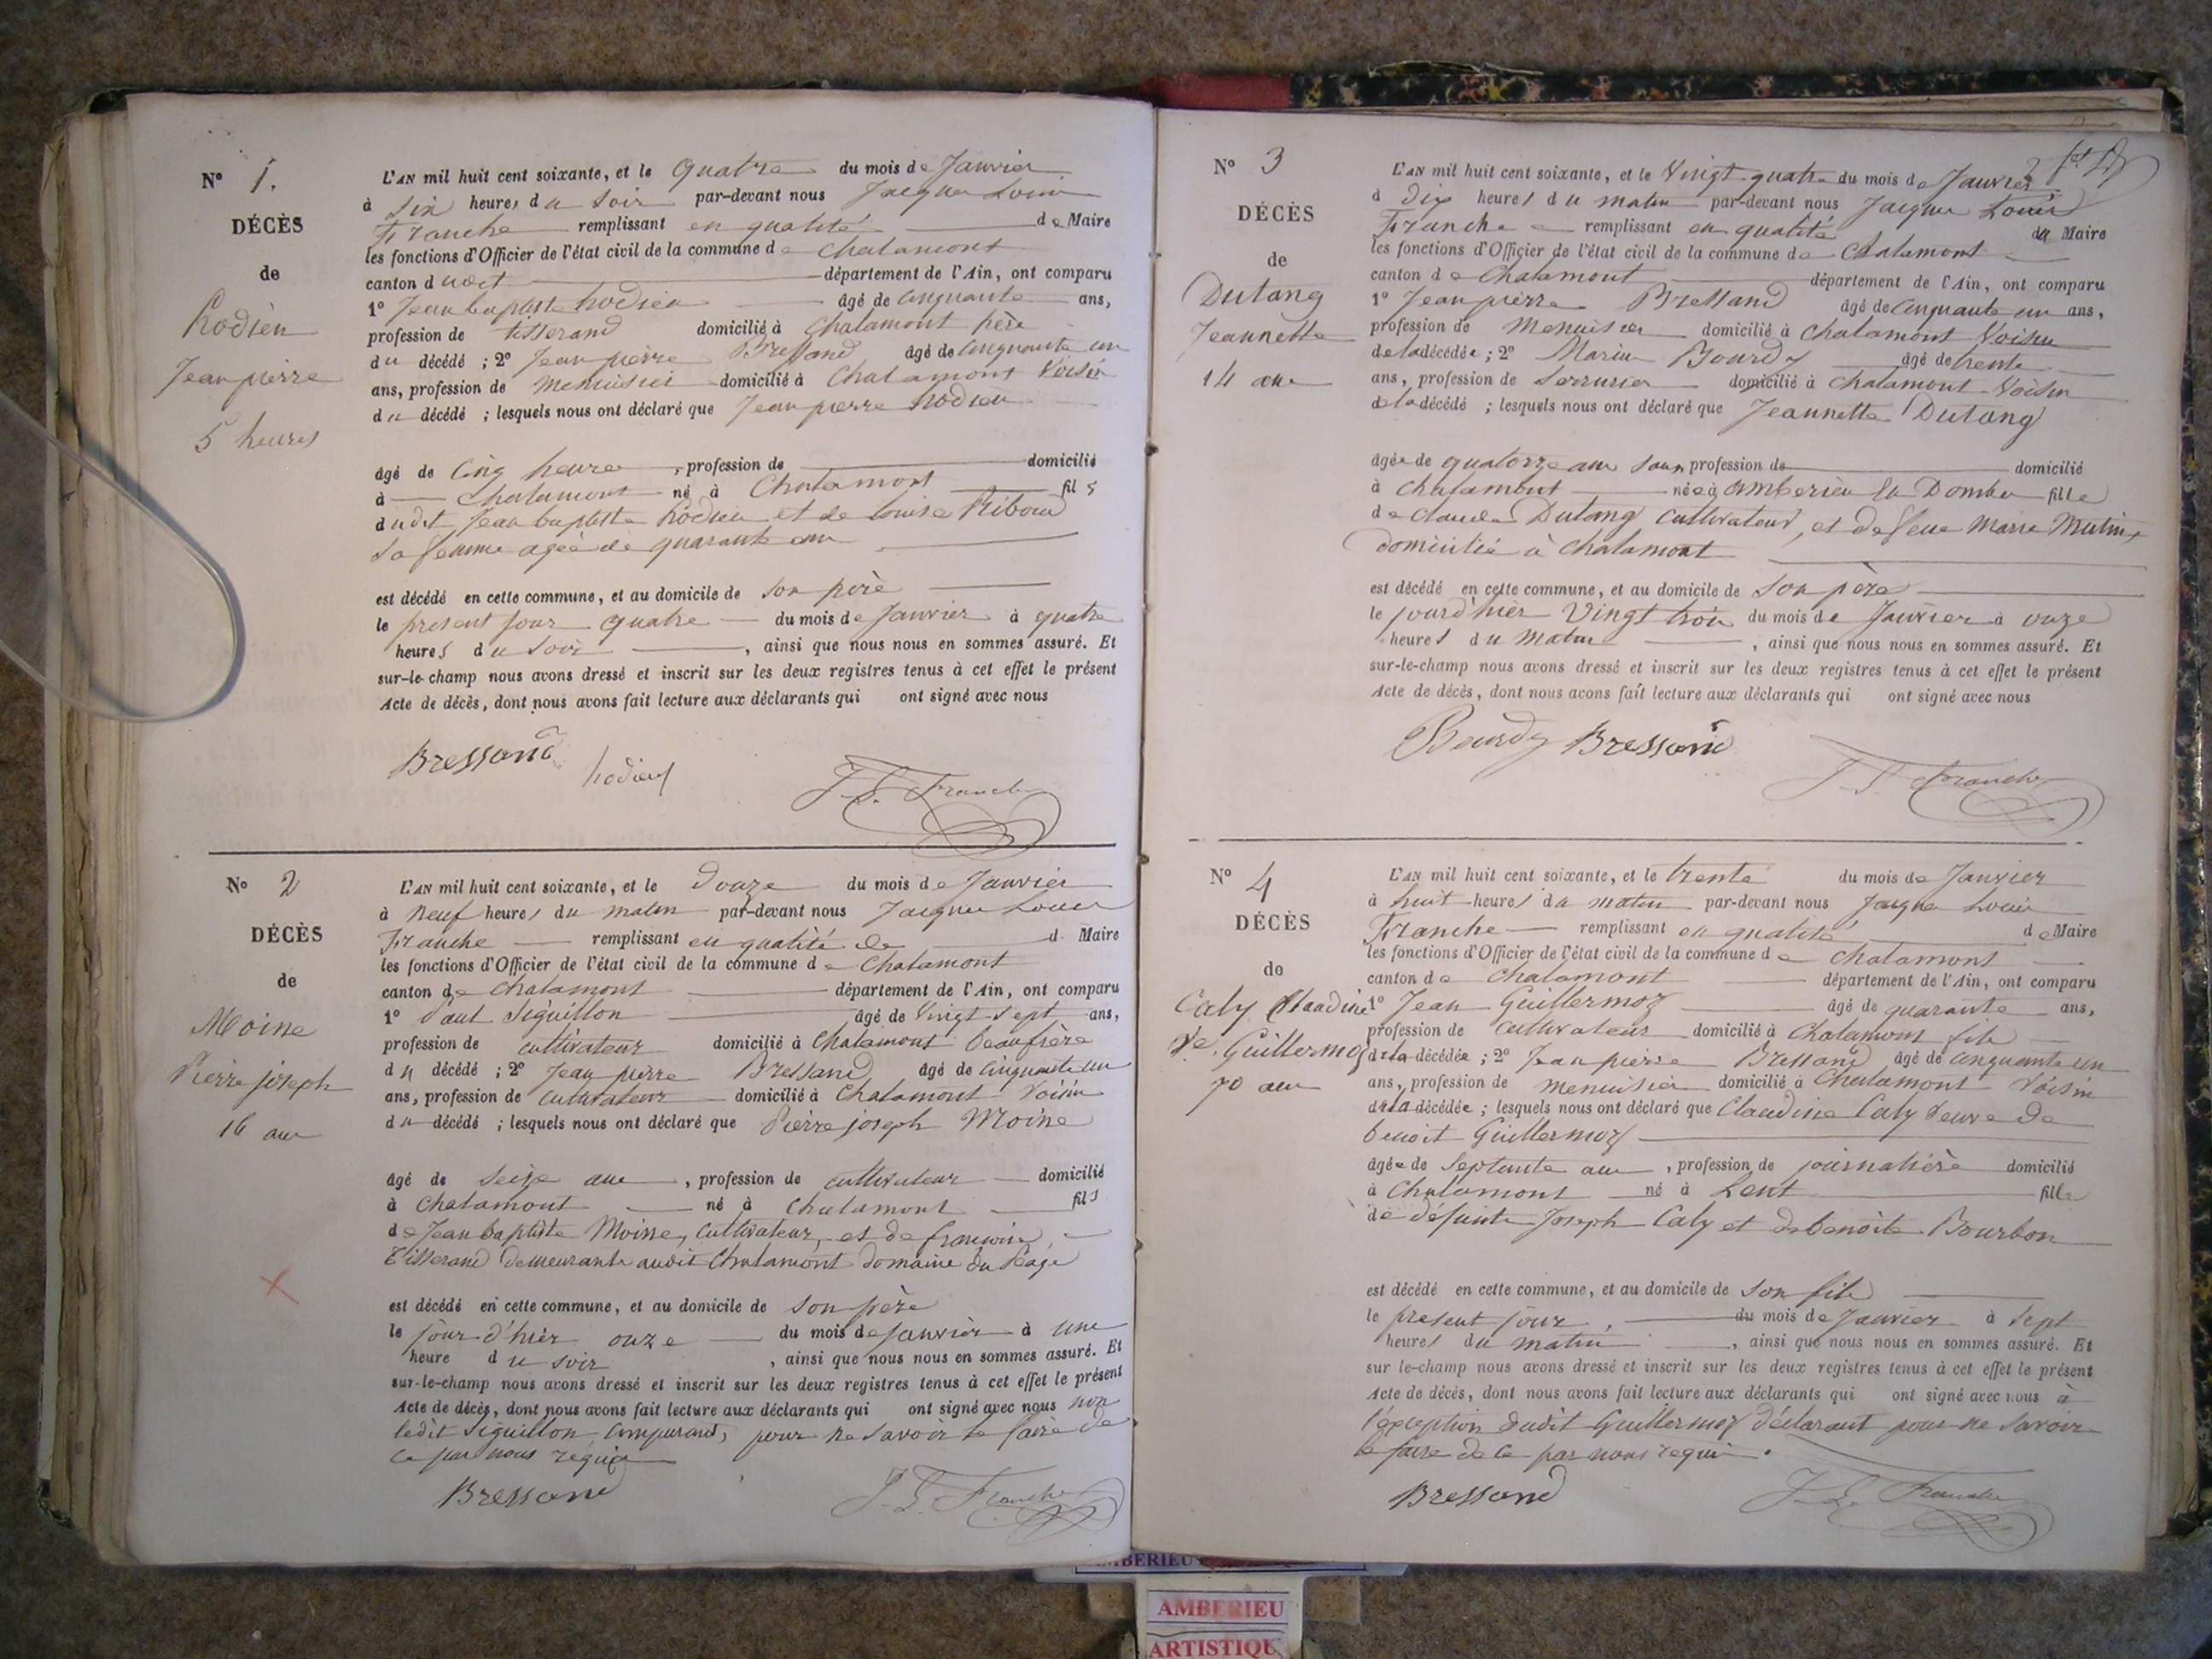 N° 1.
DÉCÈS
de
Hodieu
Jean pierre
5 heures
L'AN mil huit cent soixante, et le quatre du mois de Janvier
à six heures du soir par-devant nous Jacques Louis
Franche remplissant en qualité de Maire
les fonctions d'Officier de l'état civil de la commune de Chalamont
canton dudit département de l'Ain, ont comparu
1° Jean baptiste hodieu âgé de cinquante ans,
profession de tisserand domicilié à Chalamont père
du décédé ; 2° Jean pierre Bressand âgé de cinquante un
ans, profession de menuisier domicilié à Chalamont Voisin
du décédé ; lesquels nous ont déclaré que Jean pierre hodieu
âgé de cinq heures , profession de domicilié
à Chalamont né à Chalamont fils
dudit Jean baptiste hodieu et de louise Riboud
sa femme agée de quarante ans
est décédé en cette commune, et au domicile de son père
le present jour quatre du mois de Janvier à quatre
heures du soir , ainsi que nous nous en sommes assuré. Et
sur-le-champ nous avons dressé et inscrit sur les deux registres tenus à cet effet le présent
Acte de décès, dont nous avons fait lecture aux déclarants qui ont signé avec nous
Bressand hodieu J. L. Franche
N° 2
DÉCÈS
de
Moine
Pierre joseph
16 ans
L'AN mil huit cent soixante, et le douze du mois de Janvier
à neuf heures du matin par-devant nous Jacques Louis
Franche remplissant en qualité de d Maire
les fonctions d'Officier de l'état civil de la commune de Chalamont
canton de Chalamont département de l'Ain, ont comparu
1° Paul Siguillon âgé de Vingt sept ans,
profession de cultivateur domicilié à Chalamont beaufrère
du décédé ; 2° Jean pierre Bressand âgé de cinquante un
ans, profession de cultivateur domicilié à Chalamont Voisin
du décédé ; lesquels nous ont déclaré que Pierre joseph Moine
âgé de seize ans , profession de cultivateur domicilié
à Chalamont né à Chalamont fils
de Jean baptiste Moine, cultivateur, et de francoise
Tisserand demeurants audit Chalamont domaine du Péage
est décédé en cette commune, et au domicile de son père
le jour d'hier onze du mois de Janvier à une
heure du soir , ainsi que nous nous en sommes assuré. Et
sur-le-champ nous avons dressé et inscrit sur les deux registres tenus à cet effet le présent
Acte de décès, dont nous avons fait lecture aux déclarants qui ont signé avec nous non
ledit Siguillon comparant, pour ne savoir le faire de
ce par nous requis
Bressand J. L. Franche
N° 3
DÉCÈS
de
Dutang
Jeannette
14 ans
L'AN mil huit cent soixante, et le Vingt quatre du mois de Janvier
à dix heures du matin par-devant nous Jacques Louis
Franche remplissant en qualité de Maire
les fonctions d'Officier de l'état civil de la commune de Chalamont
canton de Chalamont département de l'Ain, ont comparu
1° Jean pierre Bressand âgé de cinquante un ans,
profession de Menuisier domicilié à Chalamont Voisin
de la décédée ; 2° Marin Bourdy âgé de trente
ans, profession de serrurier domicilié à Chalamont Voisin
de la décédé ; lesquels nous ont déclaré que Jeannette Dutang
âgée de quatorze ans sans profession de domicilié
à Chalamont née à amberieu en Dombes fille
de claude Dutang cultivateur, et de feue Marie Mutin,
domicilié à Chalamont
est décédé en cette commune, et au domicile de son père
le jourd'hier Vingt trois du mois de Janvier à onze
heures du matin , ainsi que nous nous en sommes assuré. Et
sur-le-champ nous avons dressé et inscrit sur les deux registres tenus à cet effet le présent
Acte de décès, dont nous avons fait lecture aux déclarants qui ont signé avec nous
Bourdy Bressand J. L. Franche
N° 4
DÉCÈS
de
Caly Claudine
Ve. Guillermoz
70 ans
L'AN mil huit cent soixante, et le trente du mois de Janvier
à huit heures du matin par-devant nous Jacques Louis
Franche remplissant en qualité de Maire
les fonctions d'Officier de l'état civil de la commune de Chalamont
canton de Chalamont département de l'Ain, ont comparu
1° Jean Guillermoz âgé de quarante ans,
profession de cultivateur domicilié à Chalamont fils
de la décédée ; 2° Jean pierre Bressand âgé de cinquante un
ans, profession de menuisier domicilié à Chalamont Voisin
de la décédée ; lesquels nous ont déclaré que Claudine Caly veuve de
benoit Guillermoz
âgée de septente ans , profession de journalière domicilié
à Chalamont né à Lent fille
de défunts Joseph Caly et de benoite Bourbon
est décédé en cette commune, et au domicile de son fils
le présent jour, du mois de Janvier à sept
heures du matin , ainsi que nous nous en sommes assuré. Et
sur le-champ nous avons dressé et inscrit sur les deux registres tenus à cet effet le présent
Acte de décès, dont nous avons fait lecture aux déclarants qui ont signé avec nous à
l'exception dudit Guillermoz déclarant pour ne savoir
le faire de ce par nous requis.
Bressand J. L. Franche
AMBERIEU
AMBERIEU
ARTISTIQU